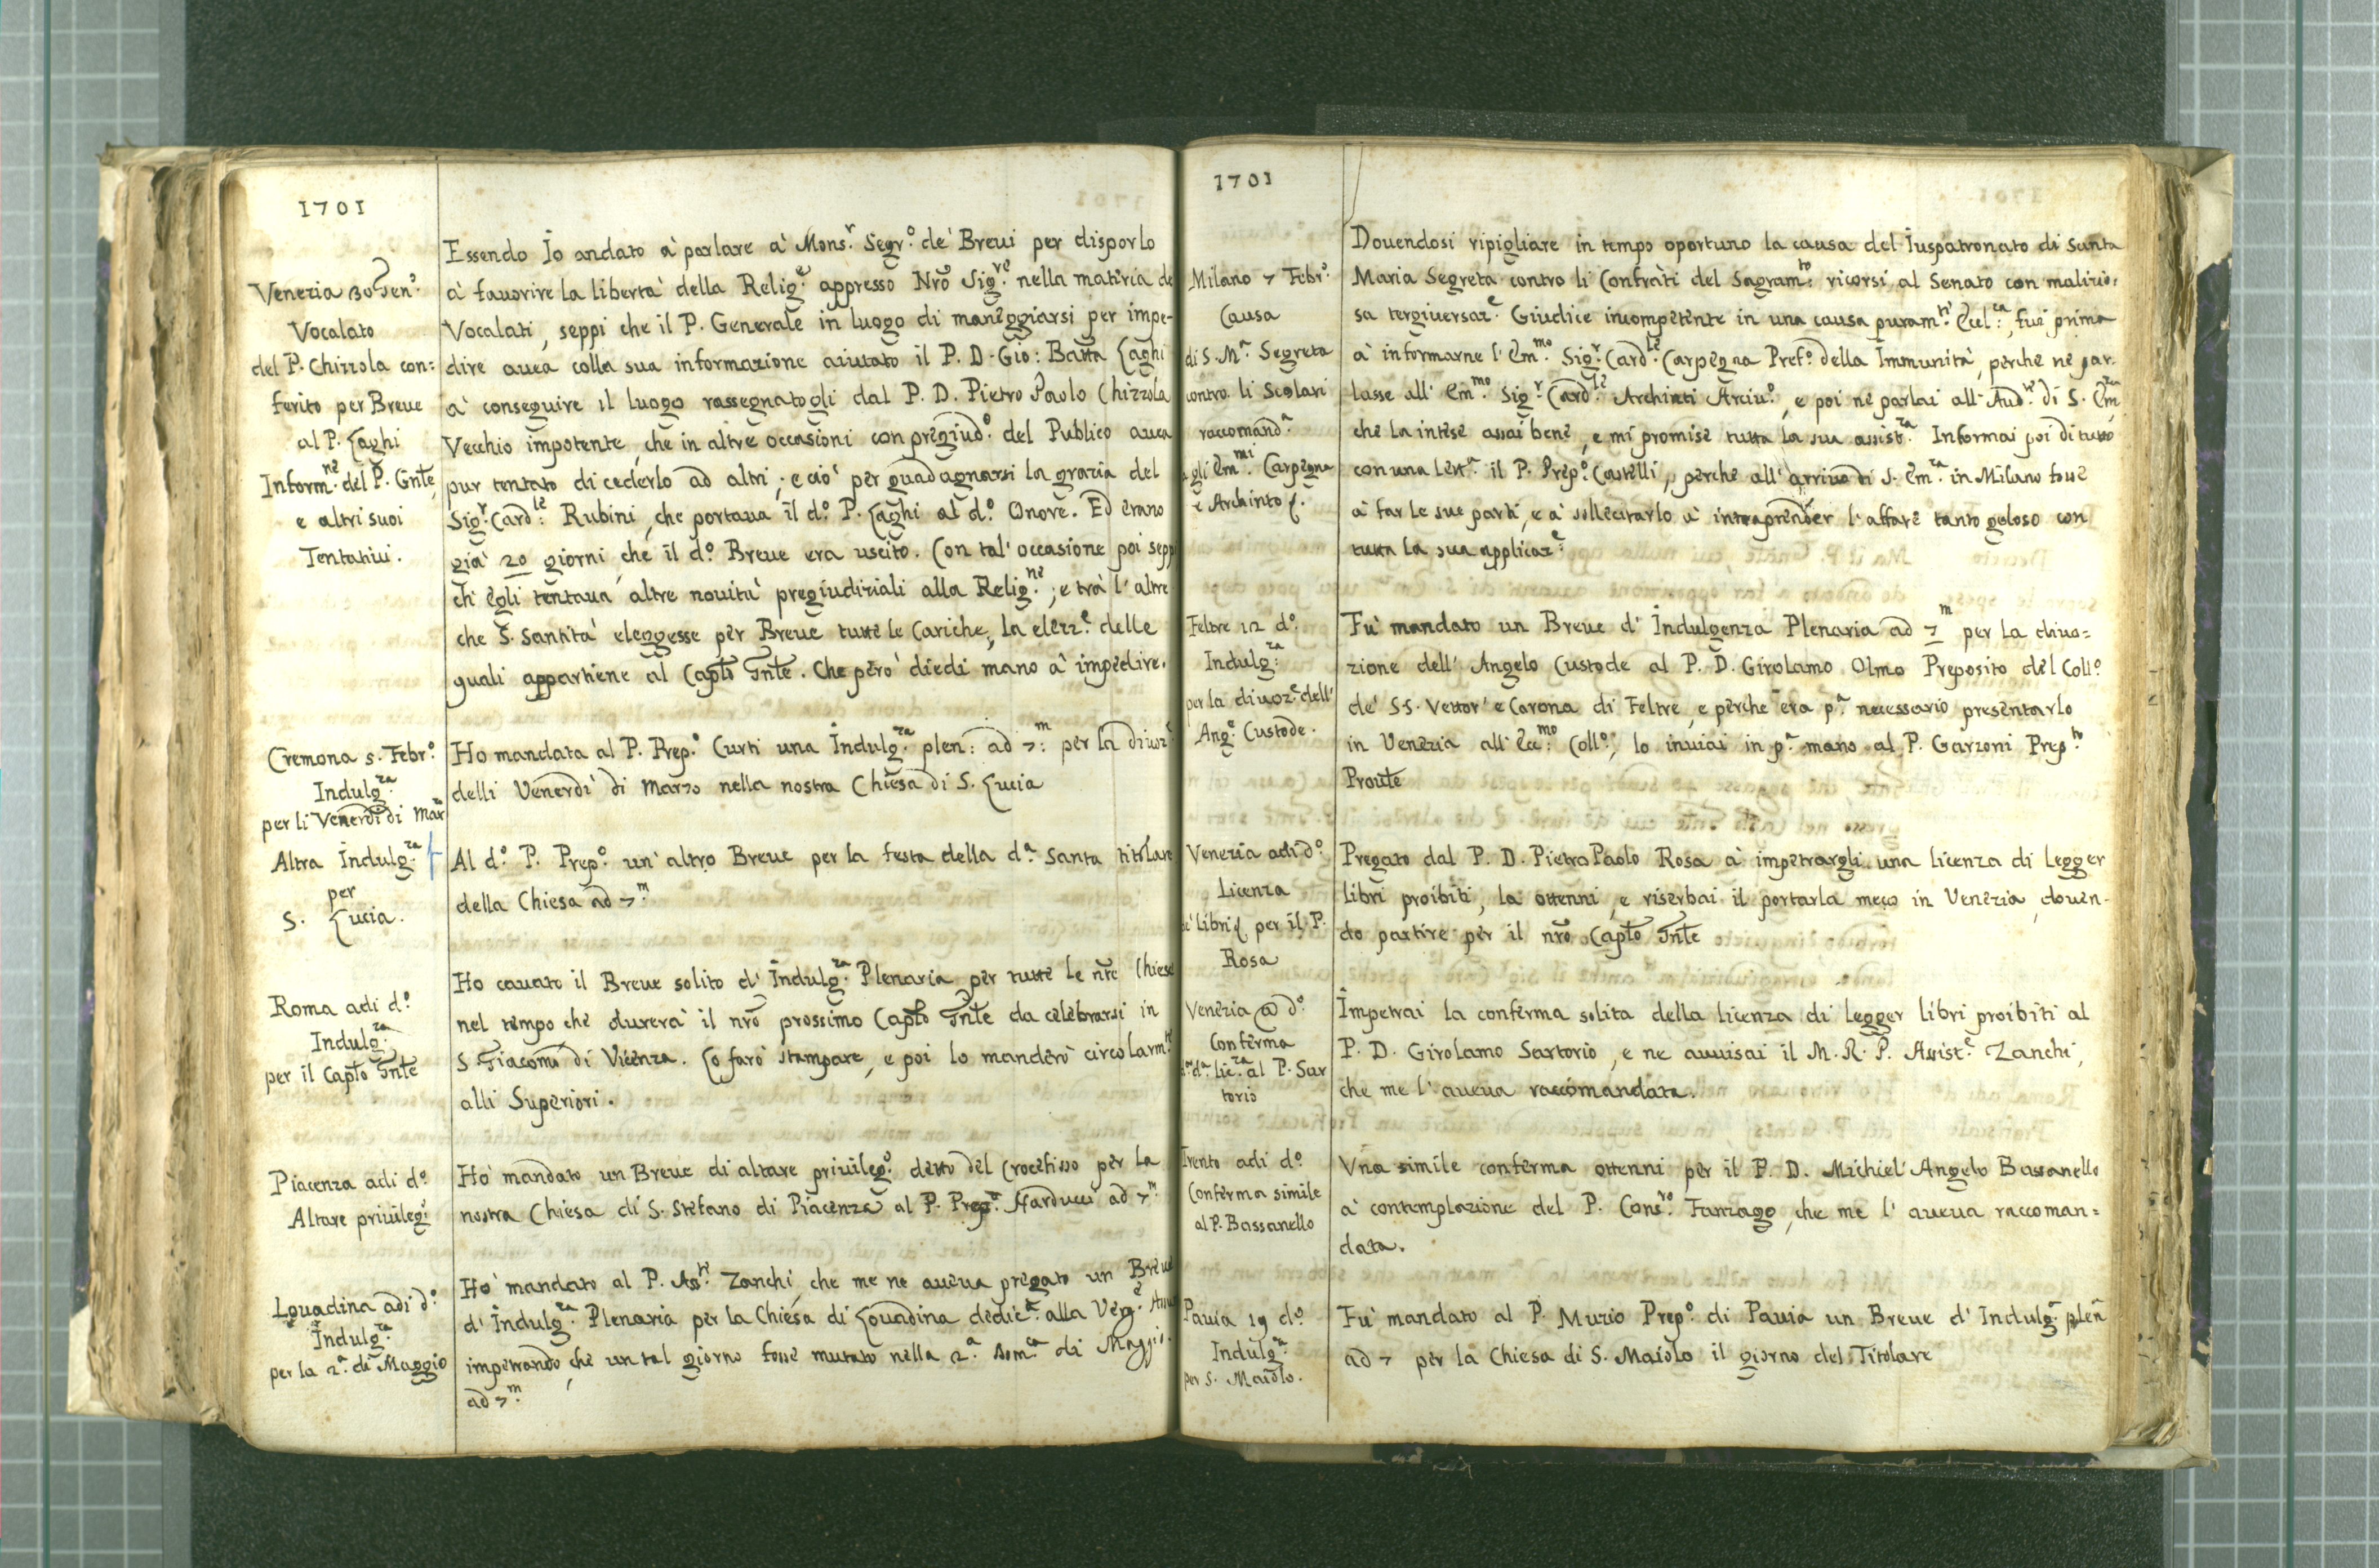 1701
Venezia 30 Gen.º
Vocalato
del P. Chizzola con=
ferito per Breue
al P. Laghi
Inform.ne del P. Gnle,
e altri suoi
Tentatiui.
Essendo Io andato à parlare à Mons.r Segr.º de' Breui per disporlo
à fauorire la libertà della Relig.e appresso Nrõ Sig.re nella materia de
Vocalati, seppi che il P. Generale in luogo di maneggiarsi per impe-
dire auea colla sua informazione aiutato il P. D. Gio: Batta Laghi
à conseguire il luogo rassegnatogli dal P. D. Pietro Paolo Chizzola
Vecchio impotente, che in altre occasioni con pregiud.º del Publico auea
pur tentato di cederlo ad altri; e ciò per guadagnarsi la grazia del
Sig.r Card.le Rubini, che portaua il d.º P. Laghi al d.º Onore. Ed erano
già 20 giorni, che il d.º Breue era uscito. Con tal' occasione poi sepp
ch' egli tentaua altre nouità pregiudiziali alla Relig.ne; e trà l' altre
che S. Santità eleggesse per Breue tutte le Cariche, la elezz.e delle
quali appartiene al Capto Gnle. Che però diedi mano à impedire.
Cremona 5. Febr.º
Indulg.za
per li Venerdì di Mar
Ho mandata al P. Prep.º Curti una Indulg.za plen: ad 7:m per la diuoz
delli Venerdì di Marzo nella nostra Chiesa di S. Lucia
Altra Indulg.za
per
S. Lucia.
Al d.º P. Prep.º un' altro Breue per la festa della d.a Santa titolare
della Chiesa ad 7.m
Roma adi d.º
Indulg.za
per il Capto Gnle
Ho cauato il Breue solito d' Indulg.za Plenaria per tutte le nre Chiese
nel tempo che durerà il nrõ prossimo Capto Gnle da celebrarsi in
S. Giacomo di Vicenza. Lo farò stampare, e poi lo manderò circolarm.te
alli Superiori.
Piacenza adi d.º
Altare priuileg.
Hò mandato un Breue di altare priuileg.º detto del Crocefisso per la
nostra Chiesa di S. Stefano di Piacenza al P. Prep.º Narducci ad 7.m
Louadina adi d.º
Indulg.za
per la 2.a di Maggio
Hò mandato al P. Ass.te Zanchi, che me ne aueua pregato un Breue
d' Indulg.za Plenaria per la Chiesa di Louadina dedic.ta alla Verg.e
impetrando, che un tal giorno fosse mutato nella 2.a Dom.ca di Maggio.
ad 7.m
1701
Milano 7 Febr.º
Causa
di S. M.a Segreta
contro li Scolari
raccomand.a
agli Em.mi Carpegna
e Archinto
Douendosi ripigliare in tempo oportuno la causa del Iuspatronato di Santa
Maria Segreta contro li Confrati del Sagram.to ricorsi al Senato con malizio=
sa tergiuersaz.e Giudice incompetente in una causa puram.te Eccl.ca, fui prima
à informarne l' Em.mo Sig.r Card.le Carpegna Pref.º della Immunità, perche ne par-
lasse all' Em.mo Sig.r Card.le Archinti Arciu.º, e poi ne parlai all' Aud.re di S. Em.za
che la intese assai bene, e mi promise tutta la sua assist.za Informai poi di tutto
con una lett.a il P. Prep.º Castelli, perche all' arriuo di S. Em.za in Milano fosse
à far le sue parti, e à sollecitarlo à intraprender l' affare tanto geloso con
tutta la sua applicaz.e
Feltre 12 d.º
Indulg.za
per la diuoz.e dell'
Ang.e Custode.
Fu mandato un Breue d' Indulgenza Plenaria ad 7.m per la diuo=
zione dell' Angelo Custode al P. D. Girolamo Olmo Preposito del Coll.º
de' S.S. Vettor' e Corona di Feltre, e perche era p.a necessario presentarlo
in Venezia all' Ecc.mo Coll.º, lo inuiai in p.a mano al P. Garzoni Prep.to
Proule
Venezia adi d.º
Licenza
de' libri per il P.
Rosa
Pregato dal P. D. Pietro Paolo Rosa à impetrargli una licenza di legger
libri proibiti, la ottenni, e riserbai il portarla meco in Venezia, douen-
do partire per il nrõ Capto Gnle
Venezia @ d.º
Conferma
d.a lic.za al P. Sar
torio
Impetrai la conferma solita della licenza di legger libri proibiti al
P. D. Girolamo Sartorio, e ne auuisai il M. R. P. Assist.e Zanchi,
che me l' aueua raccomandata.
Trento adi d.º
Conferma simile
al P. Bassanello
Vna simile conferma ottenni per il P. D. Michiel' Angelo Bassanello
à contemplazione del P. Cons.ro Fanzago, che me l' aueua raccoman=
data.
Pauia 19 d.º
Indulg.za
per S. Maiolo.
Fu mandato al P. Muzio Prep.º di Pauia un Breue d' Indulg.a plen
ad 7 per la Chiesa di S. Maiolo il giorno del Titolare